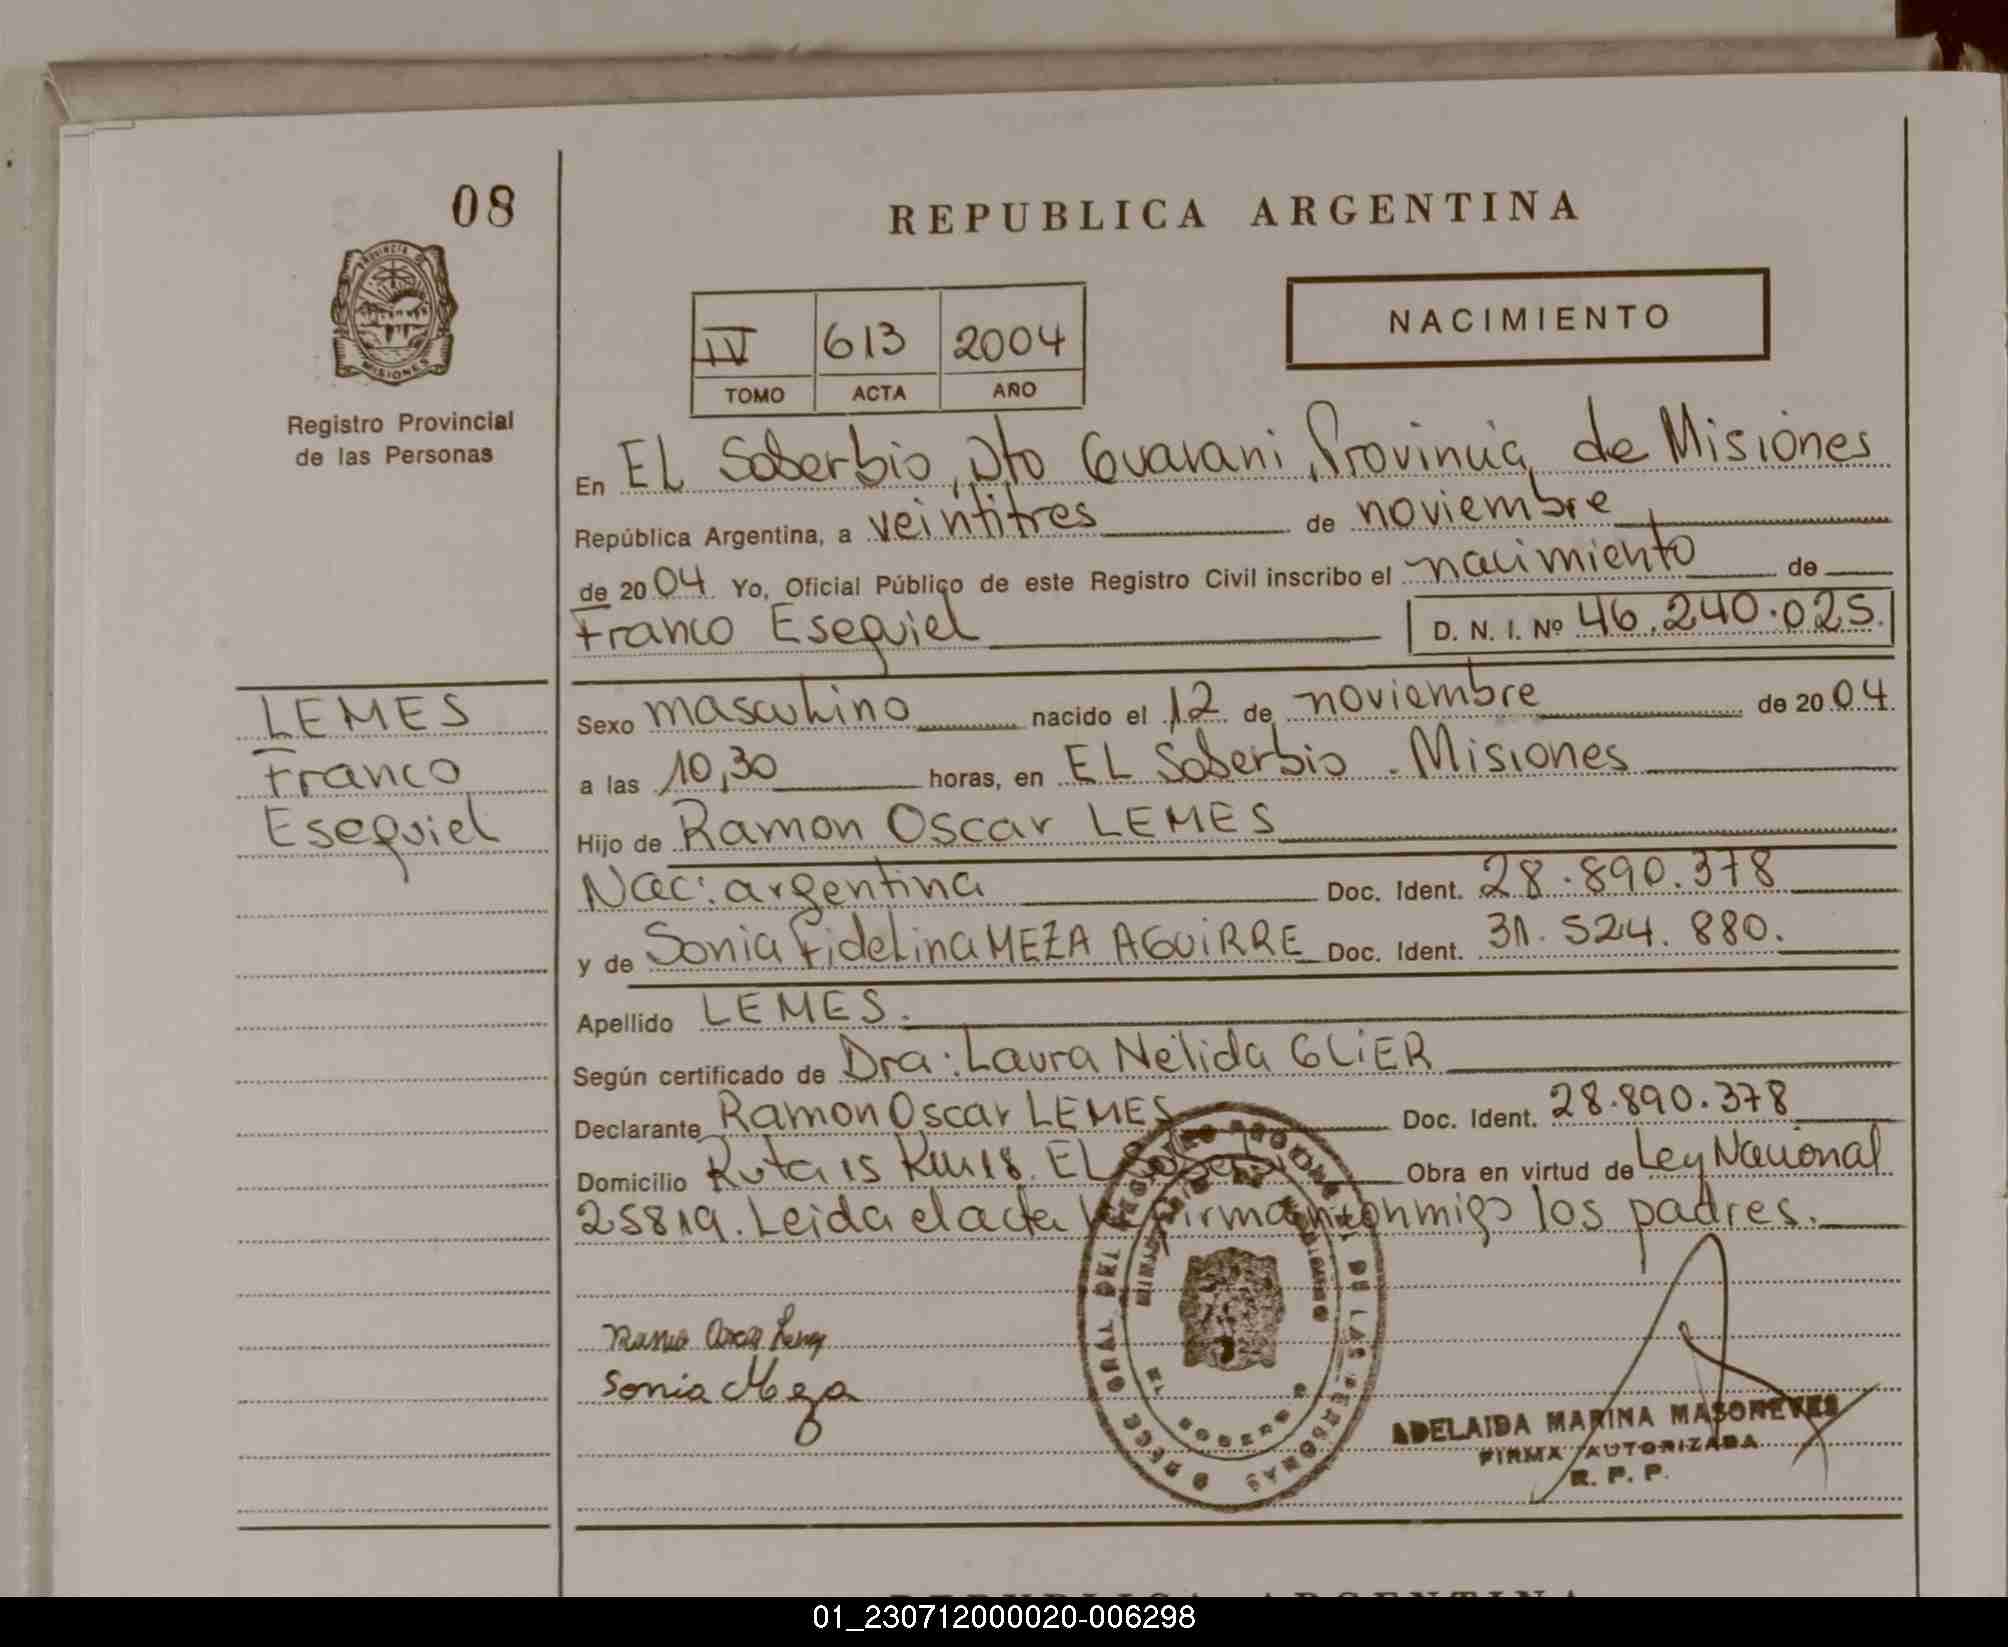 08
REPUBLICA ARGENTINA
PROVINCIA DE
MISIONES
Registro Provincial
de las Personas
IV 613 2004
TOMO ACTA AÑO
NACIMIENTO
En EL Soberbio, Dto Guarani, Provincia de Misiones
República Argentina, a veintitres de noviembre
de 2004 Yo, Oficial Público de este Registro Civil inscribo el nacimiento de
Franco Esequiel D. N. I. Nº 46.240.025.
LEMES
Franco
Esequiel
Sexo masculino nacido el 12 de noviembre de 2004
a las 10,30 horas, en EL Soberbio . Misiones
Hijo de Ramon Oscar LEMES
Nac: argentina Doc. Ident. 28.890.378
y de Sonia Fidelina MEZA AGUIRRE Doc. Ident. 31.524.880.
Apellido LEMES.
Según certificado de Dra: Laura Nélida GLIER
Declarante Ramon Oscar LEMES Doc. Ident. 28.890.378
Domicilio Ruta 15 Km 18. EL Soberbio Obra en virtud de Ley Nacional
25819. Leida el acta la firman conmigo los padres.
Oscar
Sonia Meza
DE LAS PERSONAS
ADELAIDA MARINA MASONEVES
FIRMA AUTORIZADA
R. P. P.
REPUBLICA ARGENTINA
01_230712000020-006298